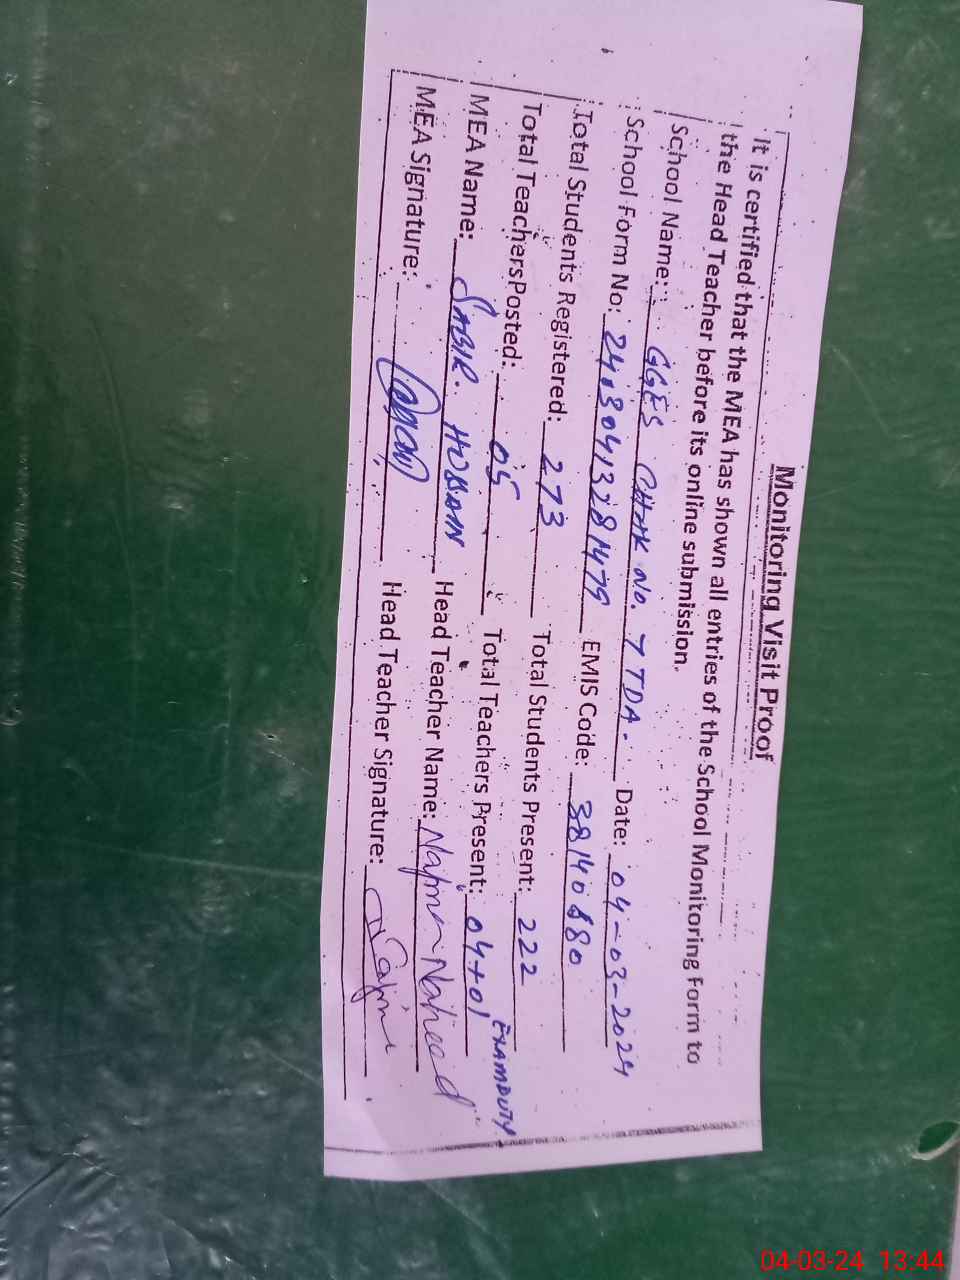 Monitoring Visit Proof
It is certified that the MEA has shown all entries of the School Monitoring Form to
the Head Teacher before its online submission.
School Name: GGES CHAK No. 7 TDA. Date: 04-03-2024
School Form No: 24030413281479 EMIS Code: 38140880
Total Students Registered: 273 Total Students Present: 222
Total TeachersPosted: 05 Total Teachers Present: 04+01 EXAM DUTY
MEA Name: SABIR. HUSSAIN Head Teacher Name: Naheed
MEA Signature: Head Teacher Signature:
04-03-24 13:44